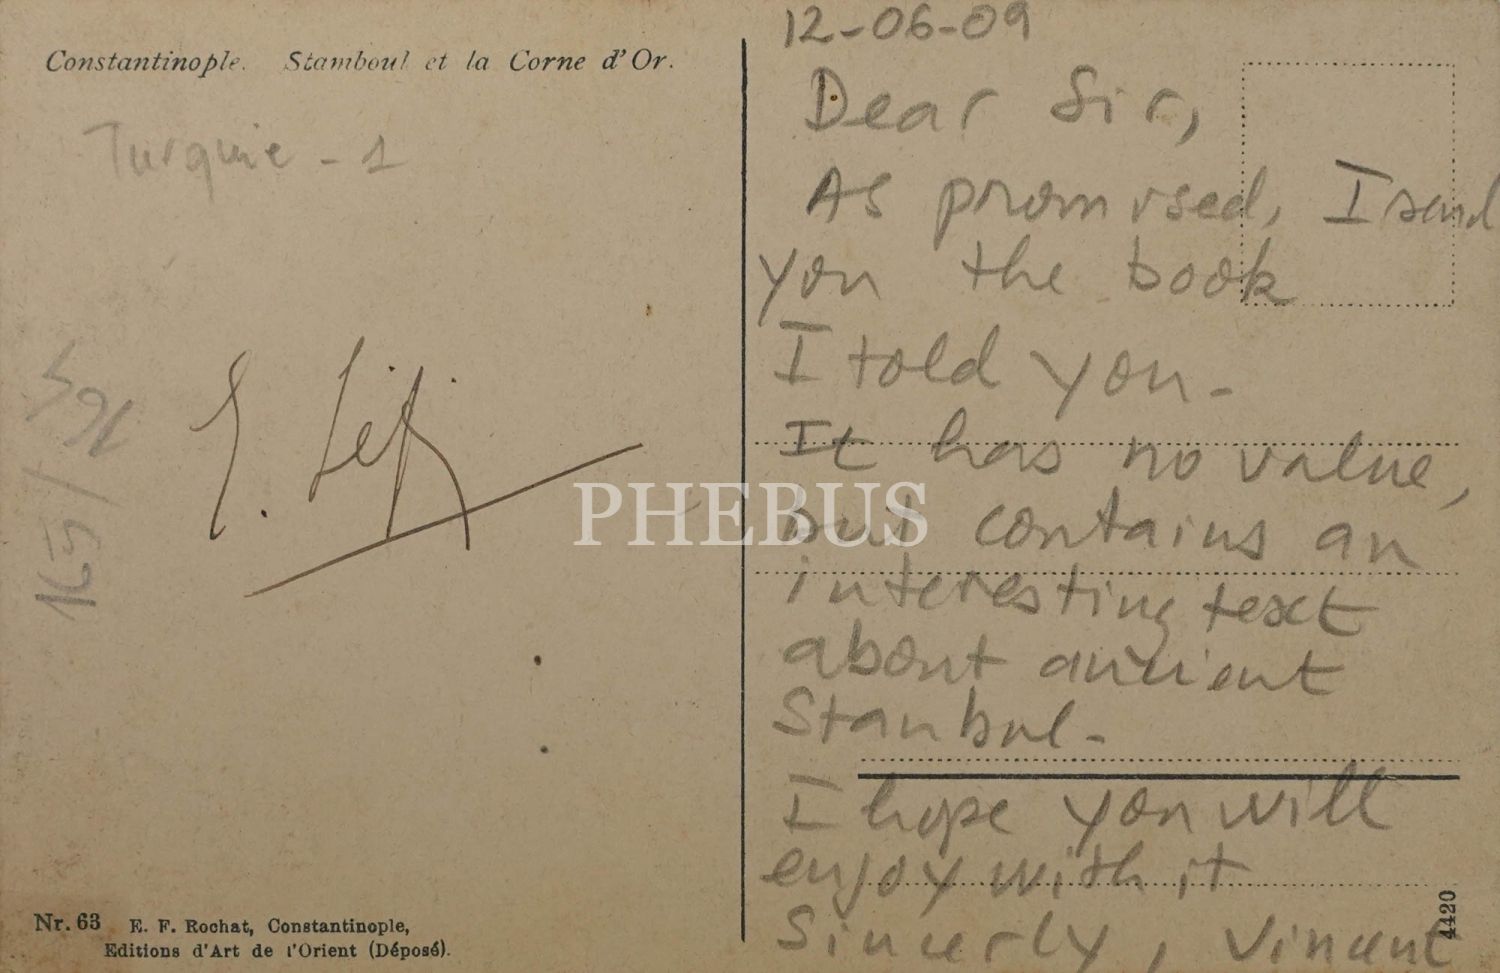 Constantinople. Stamboul et la Corne d'Or.
Turquie - 1
165/
Nr. 63 E. F. Rochat, Constantinople,
Editions d'Art de l'Orient (Déposé).
PHEBUS
12-06-09
Dear Sir,
As promised, I send
you the book
I told you -
It has no value,
but contains an
interesting text
about ancient
Stanbul -
I hope you will
enjoy with it
Sincerly, Vincent
4420